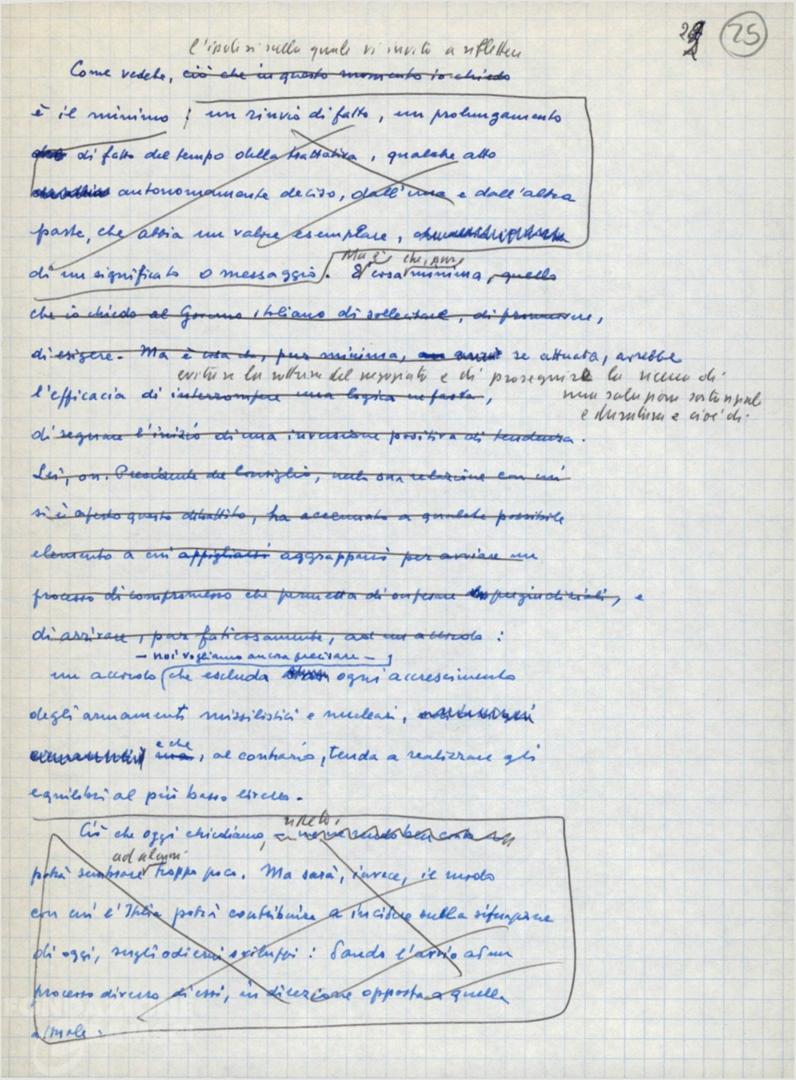 25
l'ipotesi sulla quale vi invito a riflettere
Come vedete, ciò che in questo momento io chiedo
è il minimo: un rinvio di fatto, un prolungamento
di fatto del tempo della trattativa, qualche atto
autonomamente deciso, dall'una e dall'altra
parte, che abbia un valore esemplare,
di un significato o messaggio. E' cosa minima, quello
Ma è che, pur
che io chiedo al Governo italiano di sollecitare, di promuovere,
di esigere. Ma è cosa che, pur minima, se attuata, avrebbe
evitare la rottura del negoziato e di proseguire la ricerca di
l'efficacia di interrompere una logica nefasta,
una soluzione sostanziale
e duratura e cioè di
di segnare l'inizio di una inversione positiva di tendenza.
Lei, on. Presidente del Consiglio, nella sua relazione con cui
si è aperto questo dibattito, ha accennato a qualche possibile
elemento a cui appigliarsi aggrapparsi per avviare un
processo di compromesso che permetta di superare le pregiudiziali, e
di arrivare, pur faticosamente, ad un accordo:
- noi vogliamo ancora precisare -
un accordo che escluda ogni accrescimento
degli armamenti missilistici e nucleari,
e che
ma, al contrario, tenda a realizzare gli
equilibri al più basso livello.
ripeto,
Ciò che oggi chiediamo,
ad alcuni
potrà sembrare troppo poco. Ma sarà, invece, il modo
con cui l'Italia potrà contribuire a incidere sulla situazione
di oggi, sugli odierni sviluppi: dando l'avvio ad un
processo diverso di essi, in direzione opposta a quella
attuale.